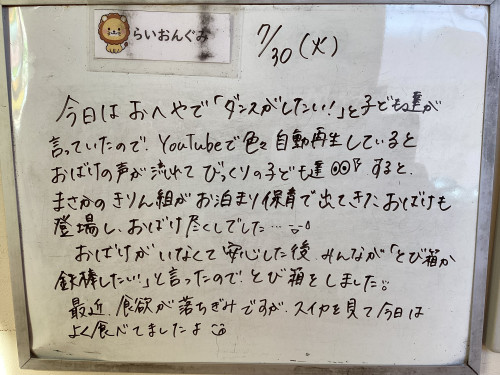 らいおんぐみ
7/30(火)
今日はおへやで「ダンスがしたい!」と子ども達が
言っていたので、YouTubeで色々自動再生していると
おばけの声が流れて びっくりの子ども達 すると、
まさかのきりん組がお泊まり保育で出てきたおばけも
登場し、おばけ尽くしでした…
おばけがいなくて安心した後、みんなが「とび箱か
鉄棒したい!」と言ったので、とび箱をしました。
最近、食欲が落ちぎみですが、スイカを見て今日は
よく食べてましたよ